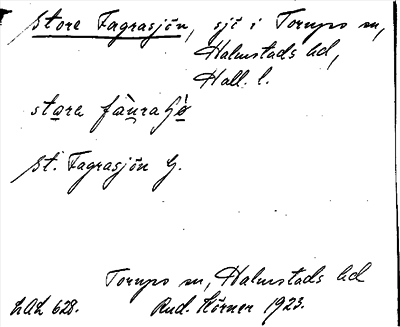 Stora Fagrasjön, sjö i Torups sn,
Halmstads hd,
Hall. l.
stora fàura
St. Fagrasjön G.
Torups sn, Halmstads hd
LAL 628. Rud. Körner 1923.